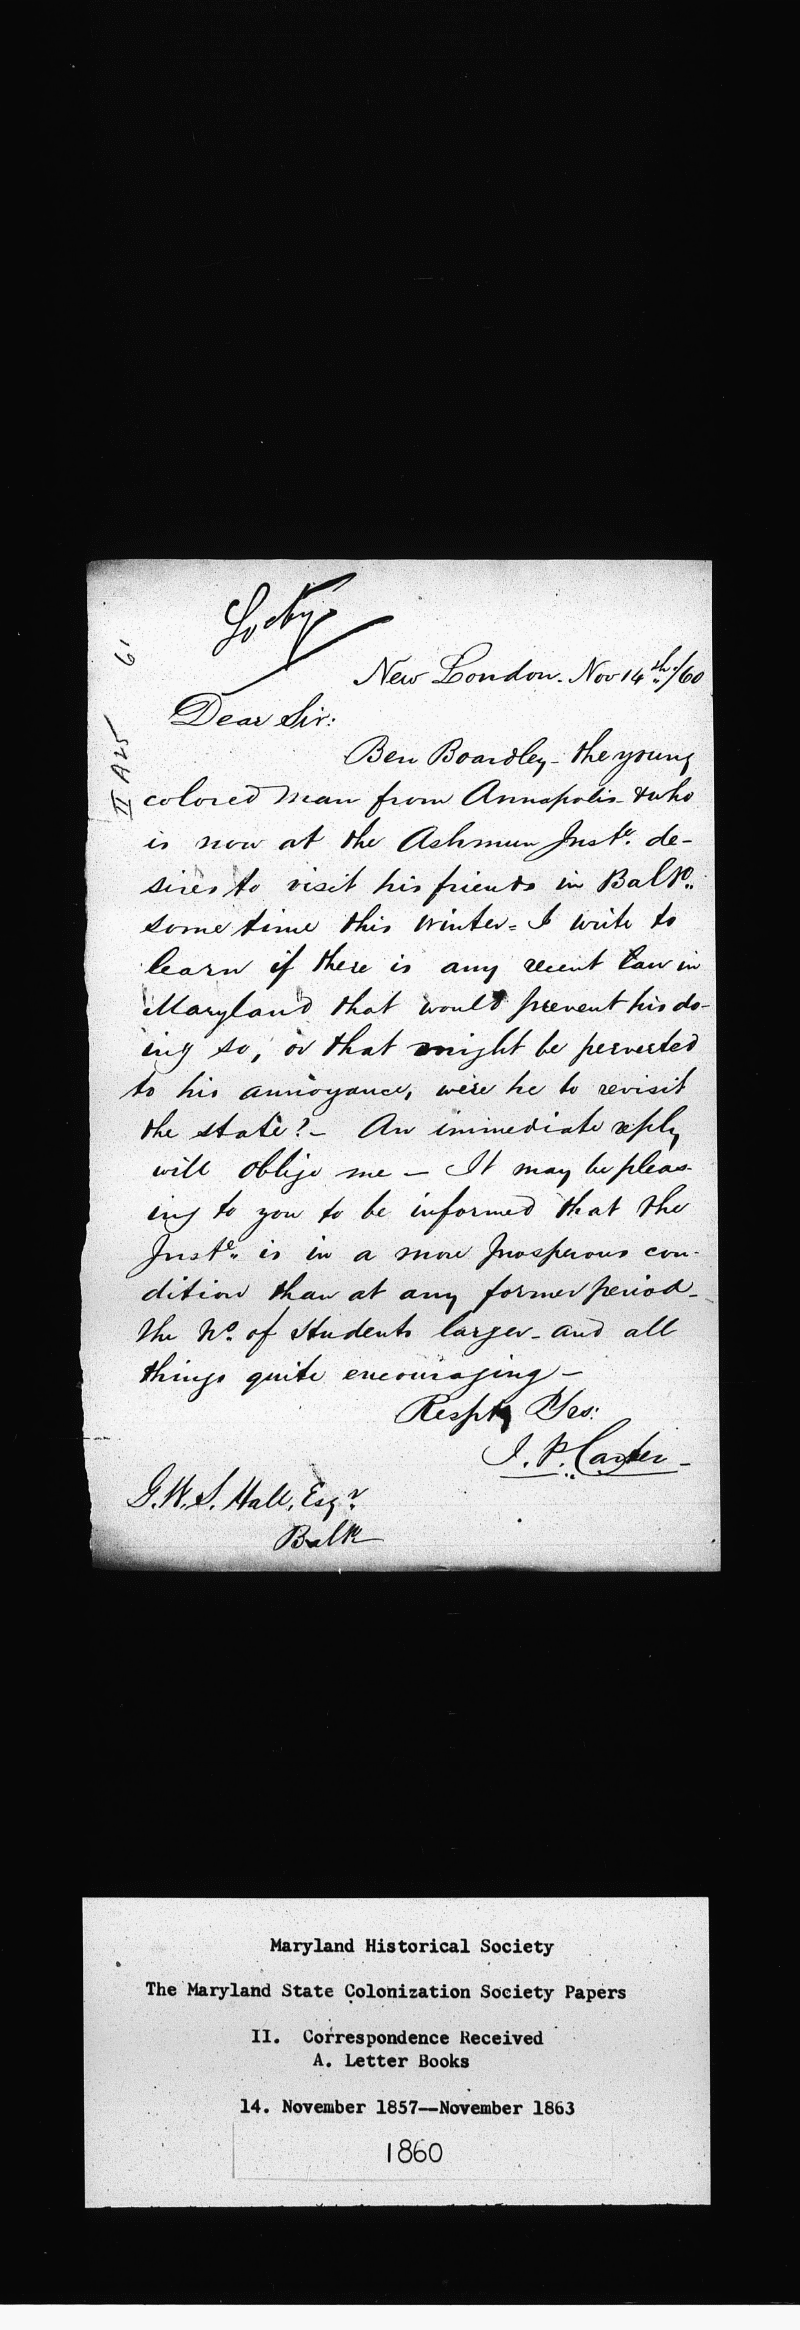 Socty
61
II A25
New London. Nov 14th./60
Dear Sir:
Ben Boardley - the young
colored man from Annapolis & who
is now at the Ashmun Inste. de-
sires to visit his friends in Balto.
some time this winter = I write to
learn if there is any recent law in
Maryland that would prevent his do-
ing so, or that might be perverted
to his annoyance, were he to revisit
the state? - An immediate reply
will oblige me - It may be pleas-
ing to you to be informed that the
Inste. is in a more prosperous con-
dition than at any former period -
the No. of students larger - and all
things quite encouraging -
Respty Yrs:
J. P. Carter -
G. W. S. Hall, Esqr
Balto
Maryland Historical Society
The Maryland State Colonization Society Papers
II. Correspondence Received
A. Letter Books
14. November 1857--November 1863
1860